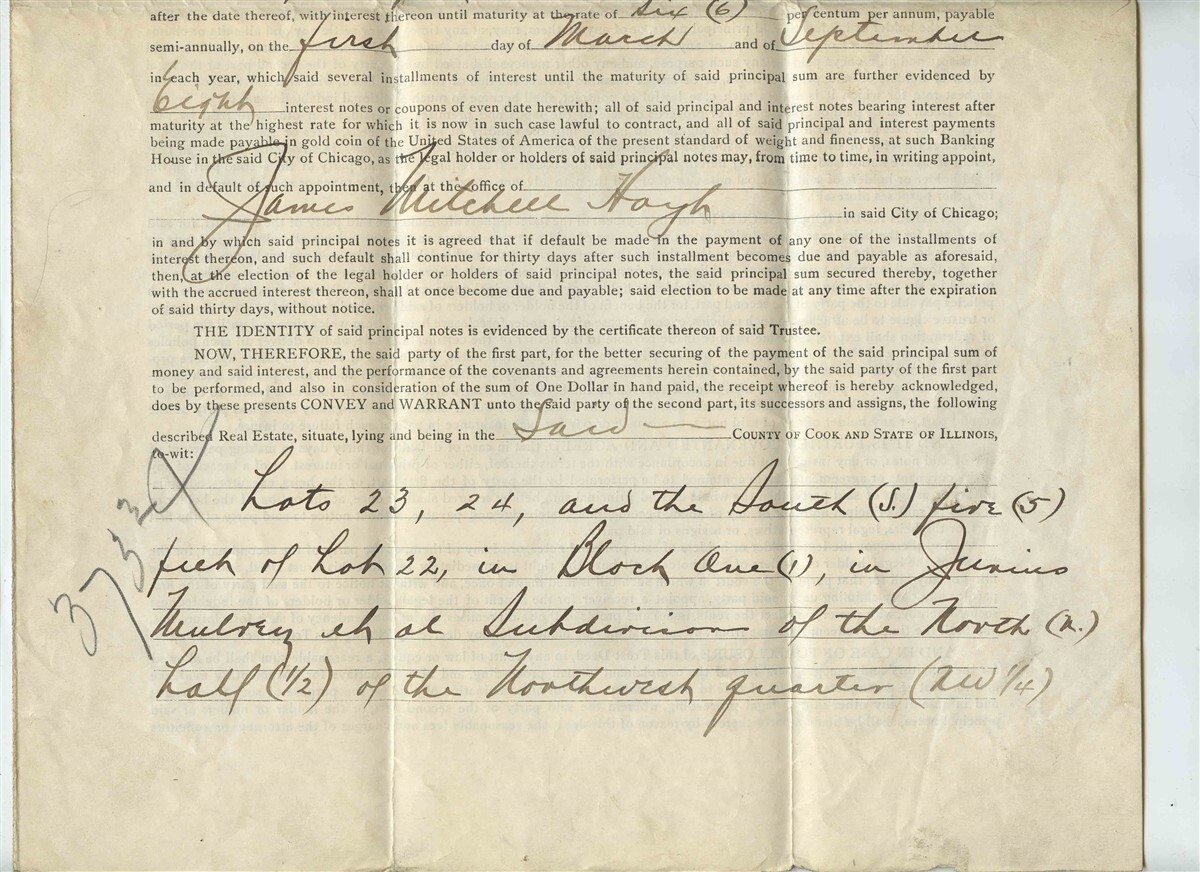 after the date thereof, with interest thereon until maturity at the rate of Six (6) per centum per annum, payable
semi-annually, on the first day of March and of September
in each year, which said several installments of interest until the maturity of said principal sum are further evidenced by
Eight interest notes or coupons of even date herewith; all of said principal and interest notes bearing interest after
maturity at the highest rate for which it is now in such case lawful to contract, and all of said principal and interest payments
being made payable in gold coin of the United States of America of the present standard of weight and fineness, at such Banking
House in the said City of Chicago, as the legal holder or holders of said principal notes may, from time to time, in writing appoint,
and in default of such appointment, then at the office of
James Mitchell Hoyt in said City of Chicago;
in and by which said principal notes it is agreed that if default be made in the payment of any one of the installments of
interest thereon, and such default shall continue for thirty days after such installment becomes due and payable as aforesaid,
then, at the election of the legal holder or holders of said principal notes, the said principal sum secured thereby, together
with the accrued interest thereon, shall at once become due and payable; said election to be made at any time after the expiration
of said thirty days, without notice.
THE IDENTITY of said principal notes is evidenced by the certificate thereon of said Trustee.
NOW, THEREFORE, the said party of the first part, for the better securing of the payment of the said principal sum of
money and said interest, and the performance of the covenants and agreements herein contained, by the said party of the first part
to be performed, and also in consideration of the sum of One Dollar in hand paid, the receipt whereof is hereby acknowledged,
does by these presents CONVEY and WARRANT unto the said party of the second part, its successors and assigns, the following
described Real Estate, situate, lying and being in the Said COUNTY OF COOK AND STATE OF ILLINOIS,
to-wit:
Lots 23, 24, and the South (S.) five (5)
feet of Lot 22, in Block One (1), in Junius
Mulvey et al Subdivision of the North (N.)
half (1/2) of the Northwest quarter (NW 1/4)